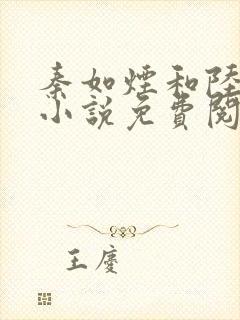 秦如煙和陸
小說免費閱
王慶